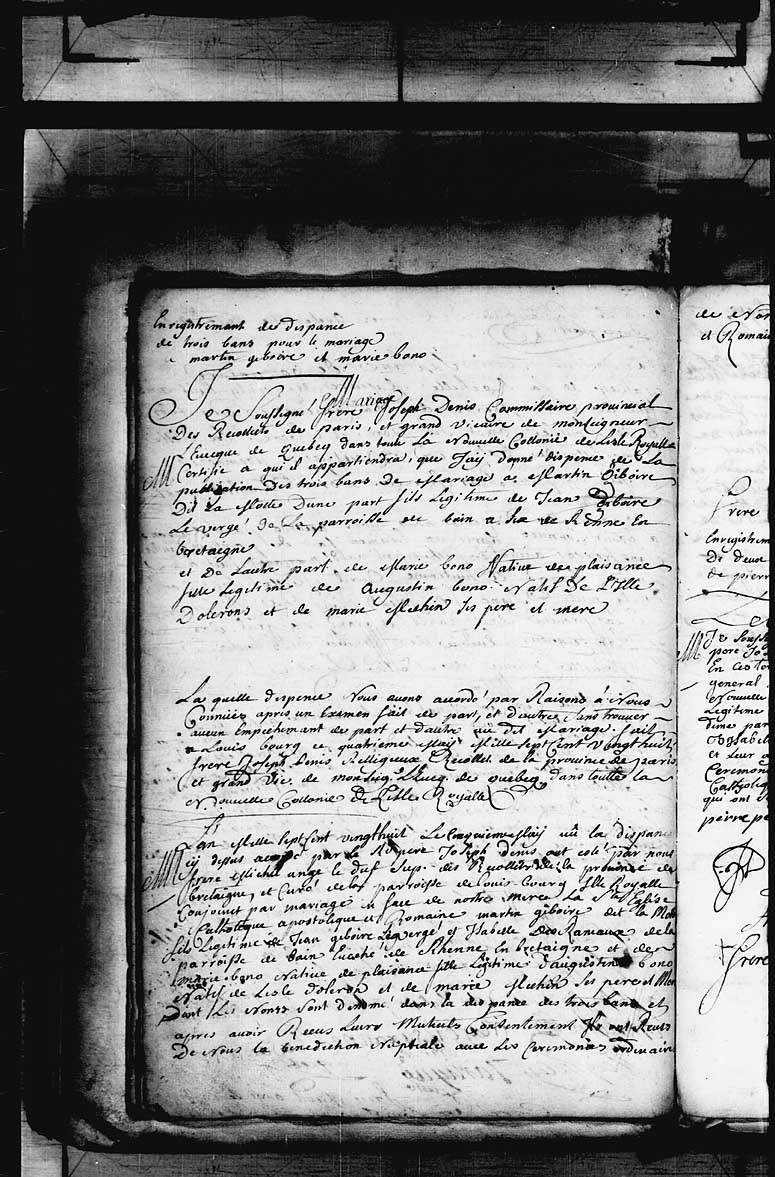 Enregistrement de dispance
de trois bans pour le mariage
martin giboire et marie bono
Mariage
Je Soussigné frere Joseph Denis Commissaire provincial
Des Recollects de paris, et grand vicaire de monseigneur
L'Eveque de Quebecq dans toute La Nouvelle Collonie de Lisle Royalle
Certifie a qui il appartiendra, que Jay donné dispence de La
publication Des trois bans de Mariage a Martin Giboire
Dit La Motte Dune part fils Legitime de Jean Giboire
Le vergé De La parroisse de bain de Renne En
bretaegne
et De Lautre part de Marie bono Native de plaisance
fille Legitime de Augustin bono Natif De L'Isle
Dolerons et de marie Mechin ses pere et mere
La quelle dispence Nous avons accordé par Raisons à Nous
Connües apres un Examen fait de part, et d'autre Sans trouver
aucun Empechement de part et d'autre au dit Mariage. fait
a Louis bourg ce quatrieme May Mille Sept Cent vingthuit
frere Joseph Denis Relligieux Recollet de la province de paris
et grand Vic. de monseig. L'Evecq de quebecq dans toutte la
Nouvelle Collonie De L'Isle Royalle
L'an Mille Sept Cent vingthuit Le May vû la dispance
cy dessus accordé par le R. pere Joseph denis ont esté par nous
frere Michel ange le duf Sup. des Recollets de la province de
bretaigne, et Curé de la parroisse de Louis bourg Isle Royalle
Conjoint par mariage in face de nostre Mere La Ste Eglise
Catholique apostolique et Romaine martin giboire dit la Mote
fils Legitime de Jean giboire Levergé et Isabelle Des Rameaux de la
parroisse de bain Eveché de Rhenne En bretaigne et de
marie bono Native de plaisance fille Legitime d'augustin bono
Natif de Lisle doleron et de marie Mechin ses pere et Mere
Dont Les Noms Sont denomé dans la dispance des trois bans et
apres avoir Receus Leurs Mutuels Consentement Ils ont Reçus
De Nous la benediction Nuptiale avec Les Ceremonies ordinaire
de Nos
et Romain
frere
Enregistrem
De deux
de pierr
Je Souss
pere Jos
En ces to
general
Nouvelle
Legitime
dune par
Issabell
et Leur
Ceremon
Catholiq
qui ont
pierre pe
frere